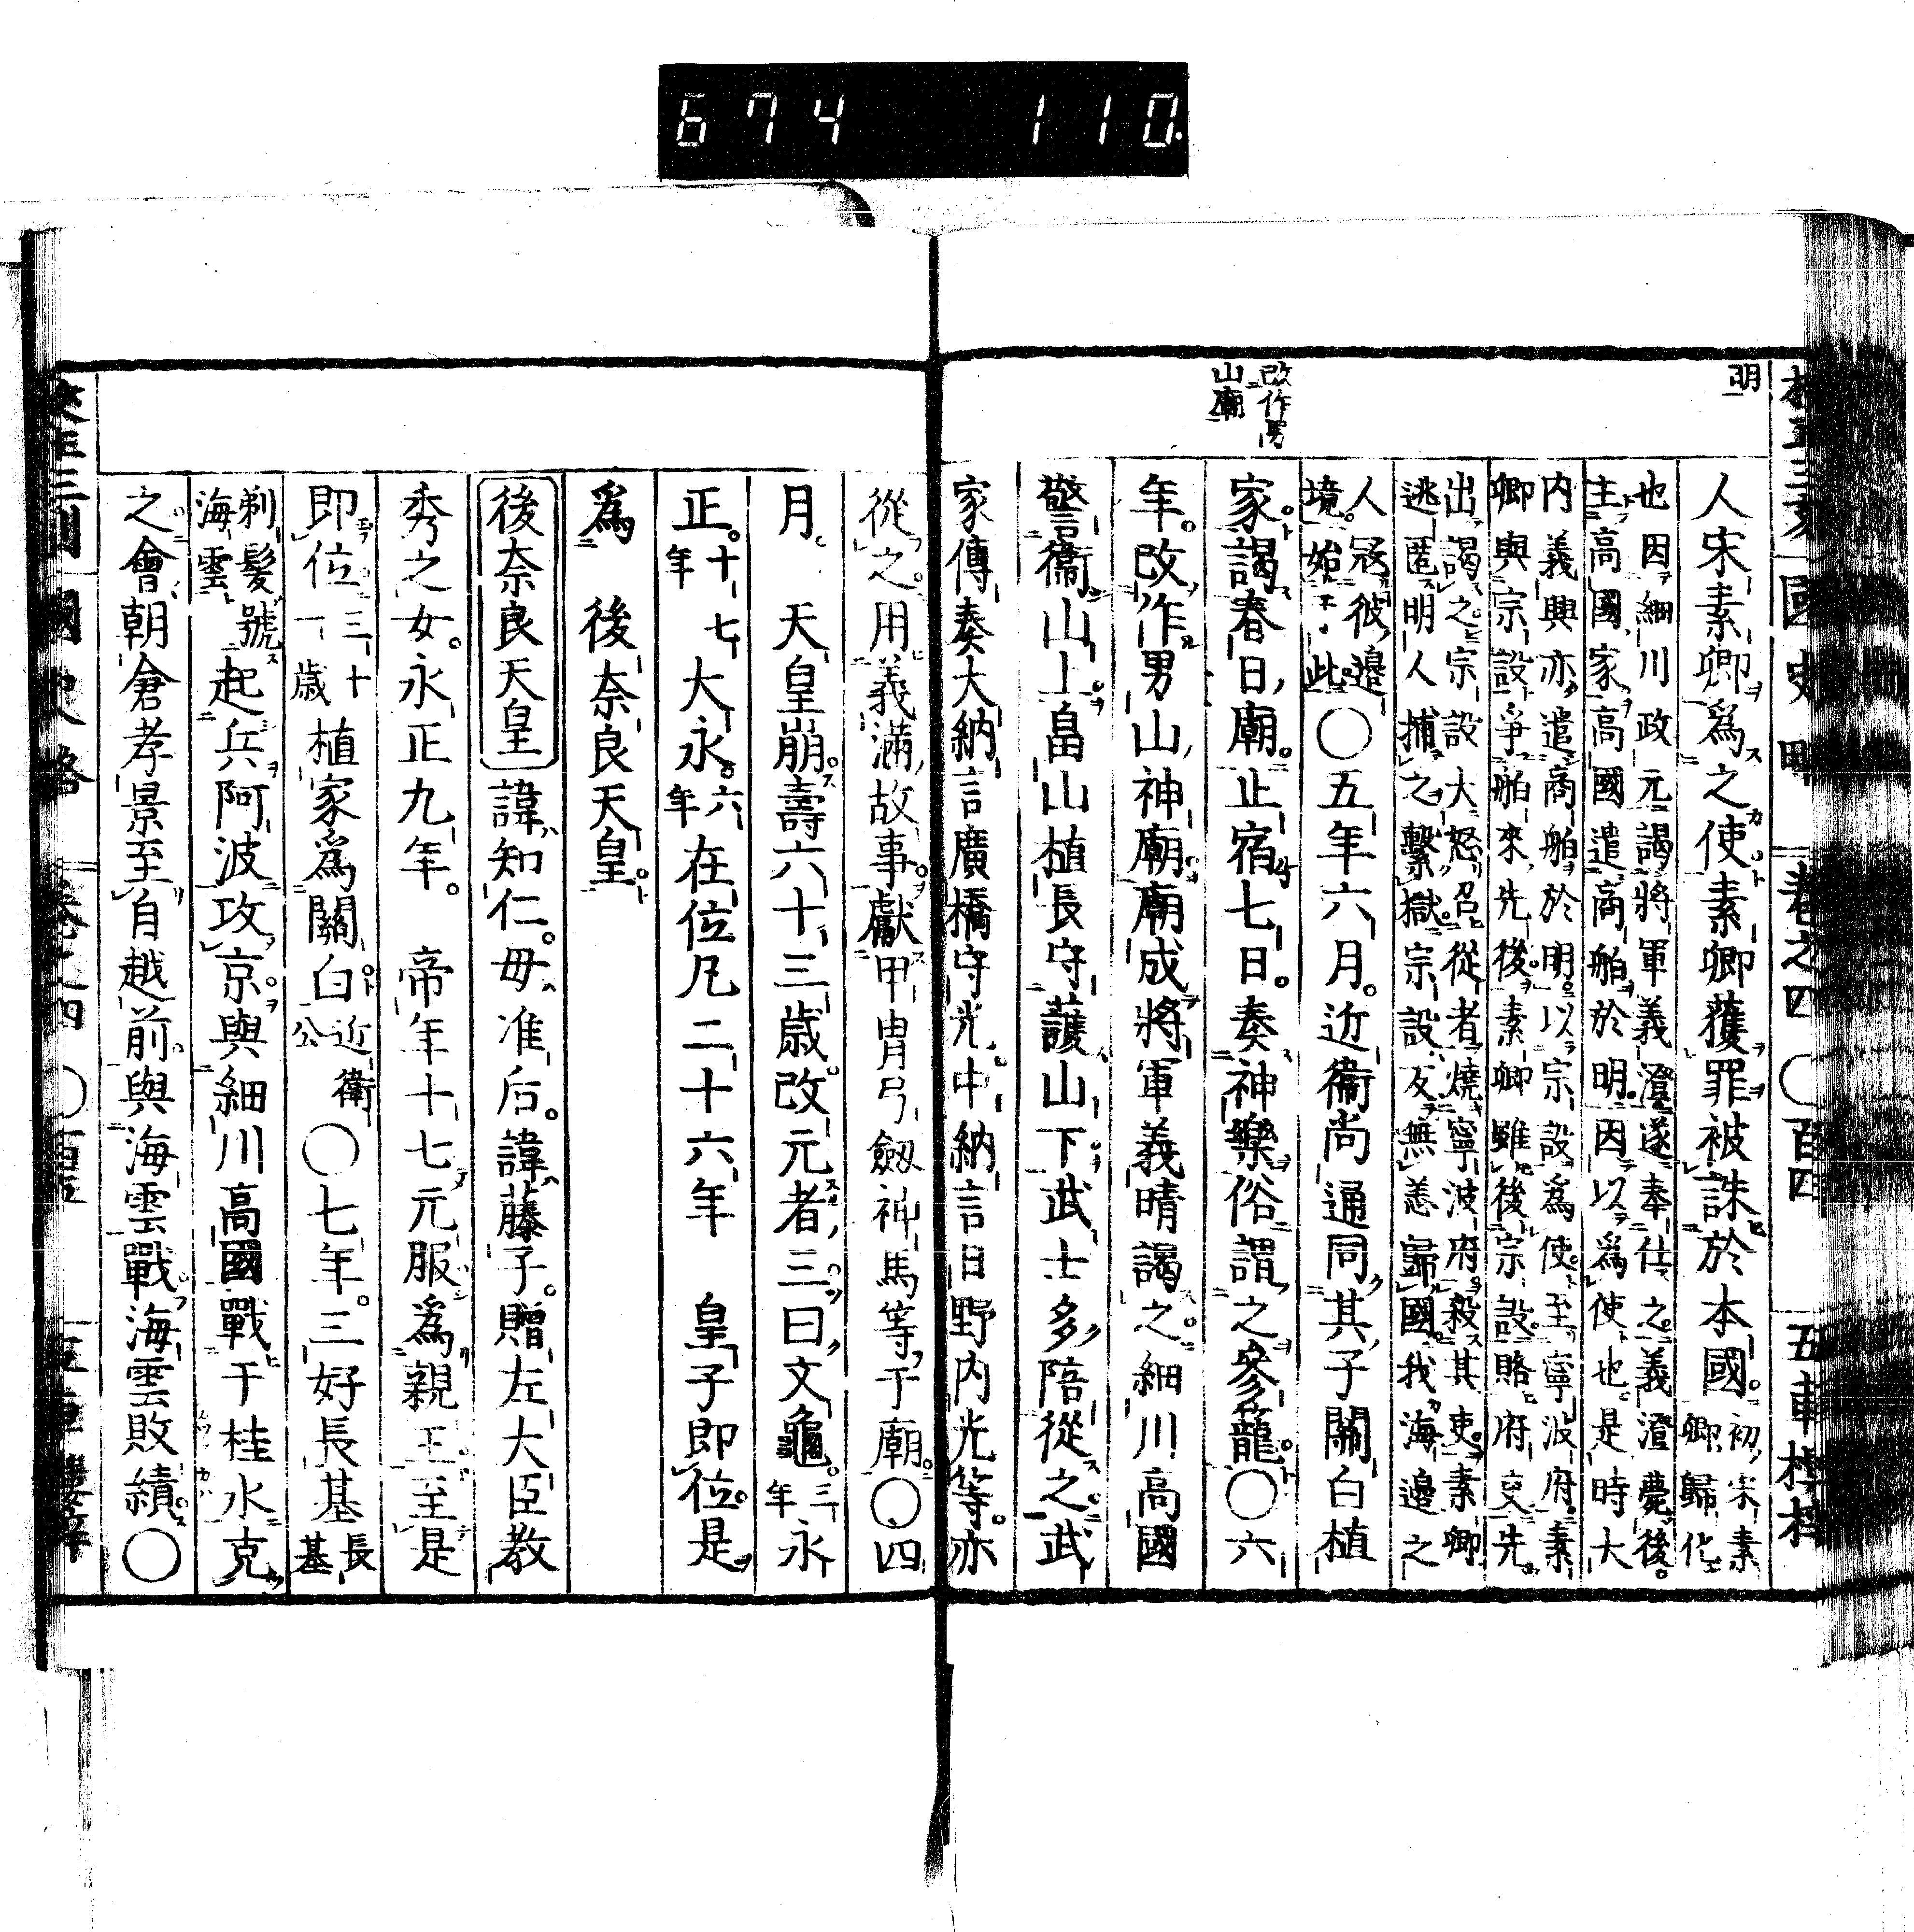 674 110
國史略 卷之四 ○百四 五車樓梓
明
人宋素卿爲之使素卿獲罪被誅於本國。初宋素卿歸化
也因細川政元謁將軍義澄遂奉仕之義澄薨後。
主高國家高國遣商舶於明。因以爲使也是時大
内義興亦遣商舶於明以宗設爲使至寧波府。素
卿與宗設爭舶來先後素卿雖後宗設賂府吏先。
出謁之宗設大怒召從者燒寧波府殺其吏素卿
逃匿明人捕之繫獄宗設及無恙歸國我海邊之
人寇彼邊
境。始于此○五年六月。近衞尚通同其子關白植
改作男
山廟
家。謁春日廟。止宿七日。奏神樂俗謂之參籠○六
年。改作男山神廟廟成將軍義晴謁之細川高國
警衞山上畠山植長守護山下武士多陪從之武
家傳奏大納言廣橋守光中納言日野内光等。亦
從之用義滿故事獻甲冑弓劔神馬等于廟○四
月。 天皇崩。壽六十三歲改元者三曰文龜三年永
正。十七年大永。六年在位凡二十六年 皇子即位是
爲 後奈良天皇。
後奈良天皇 諱知仁。母准后。諱藤子。贈左大臣教
秀之女。永正九年。 帝年十七元服爲親王至是
即位三十一歲植家爲關白近衞公○七年。三好長基長基
剃髮號海雲起兵阿波攻京與細川高國戰于桂水克
之會朝倉孝景至自越前與海雲戰海雲敗績○
國史略